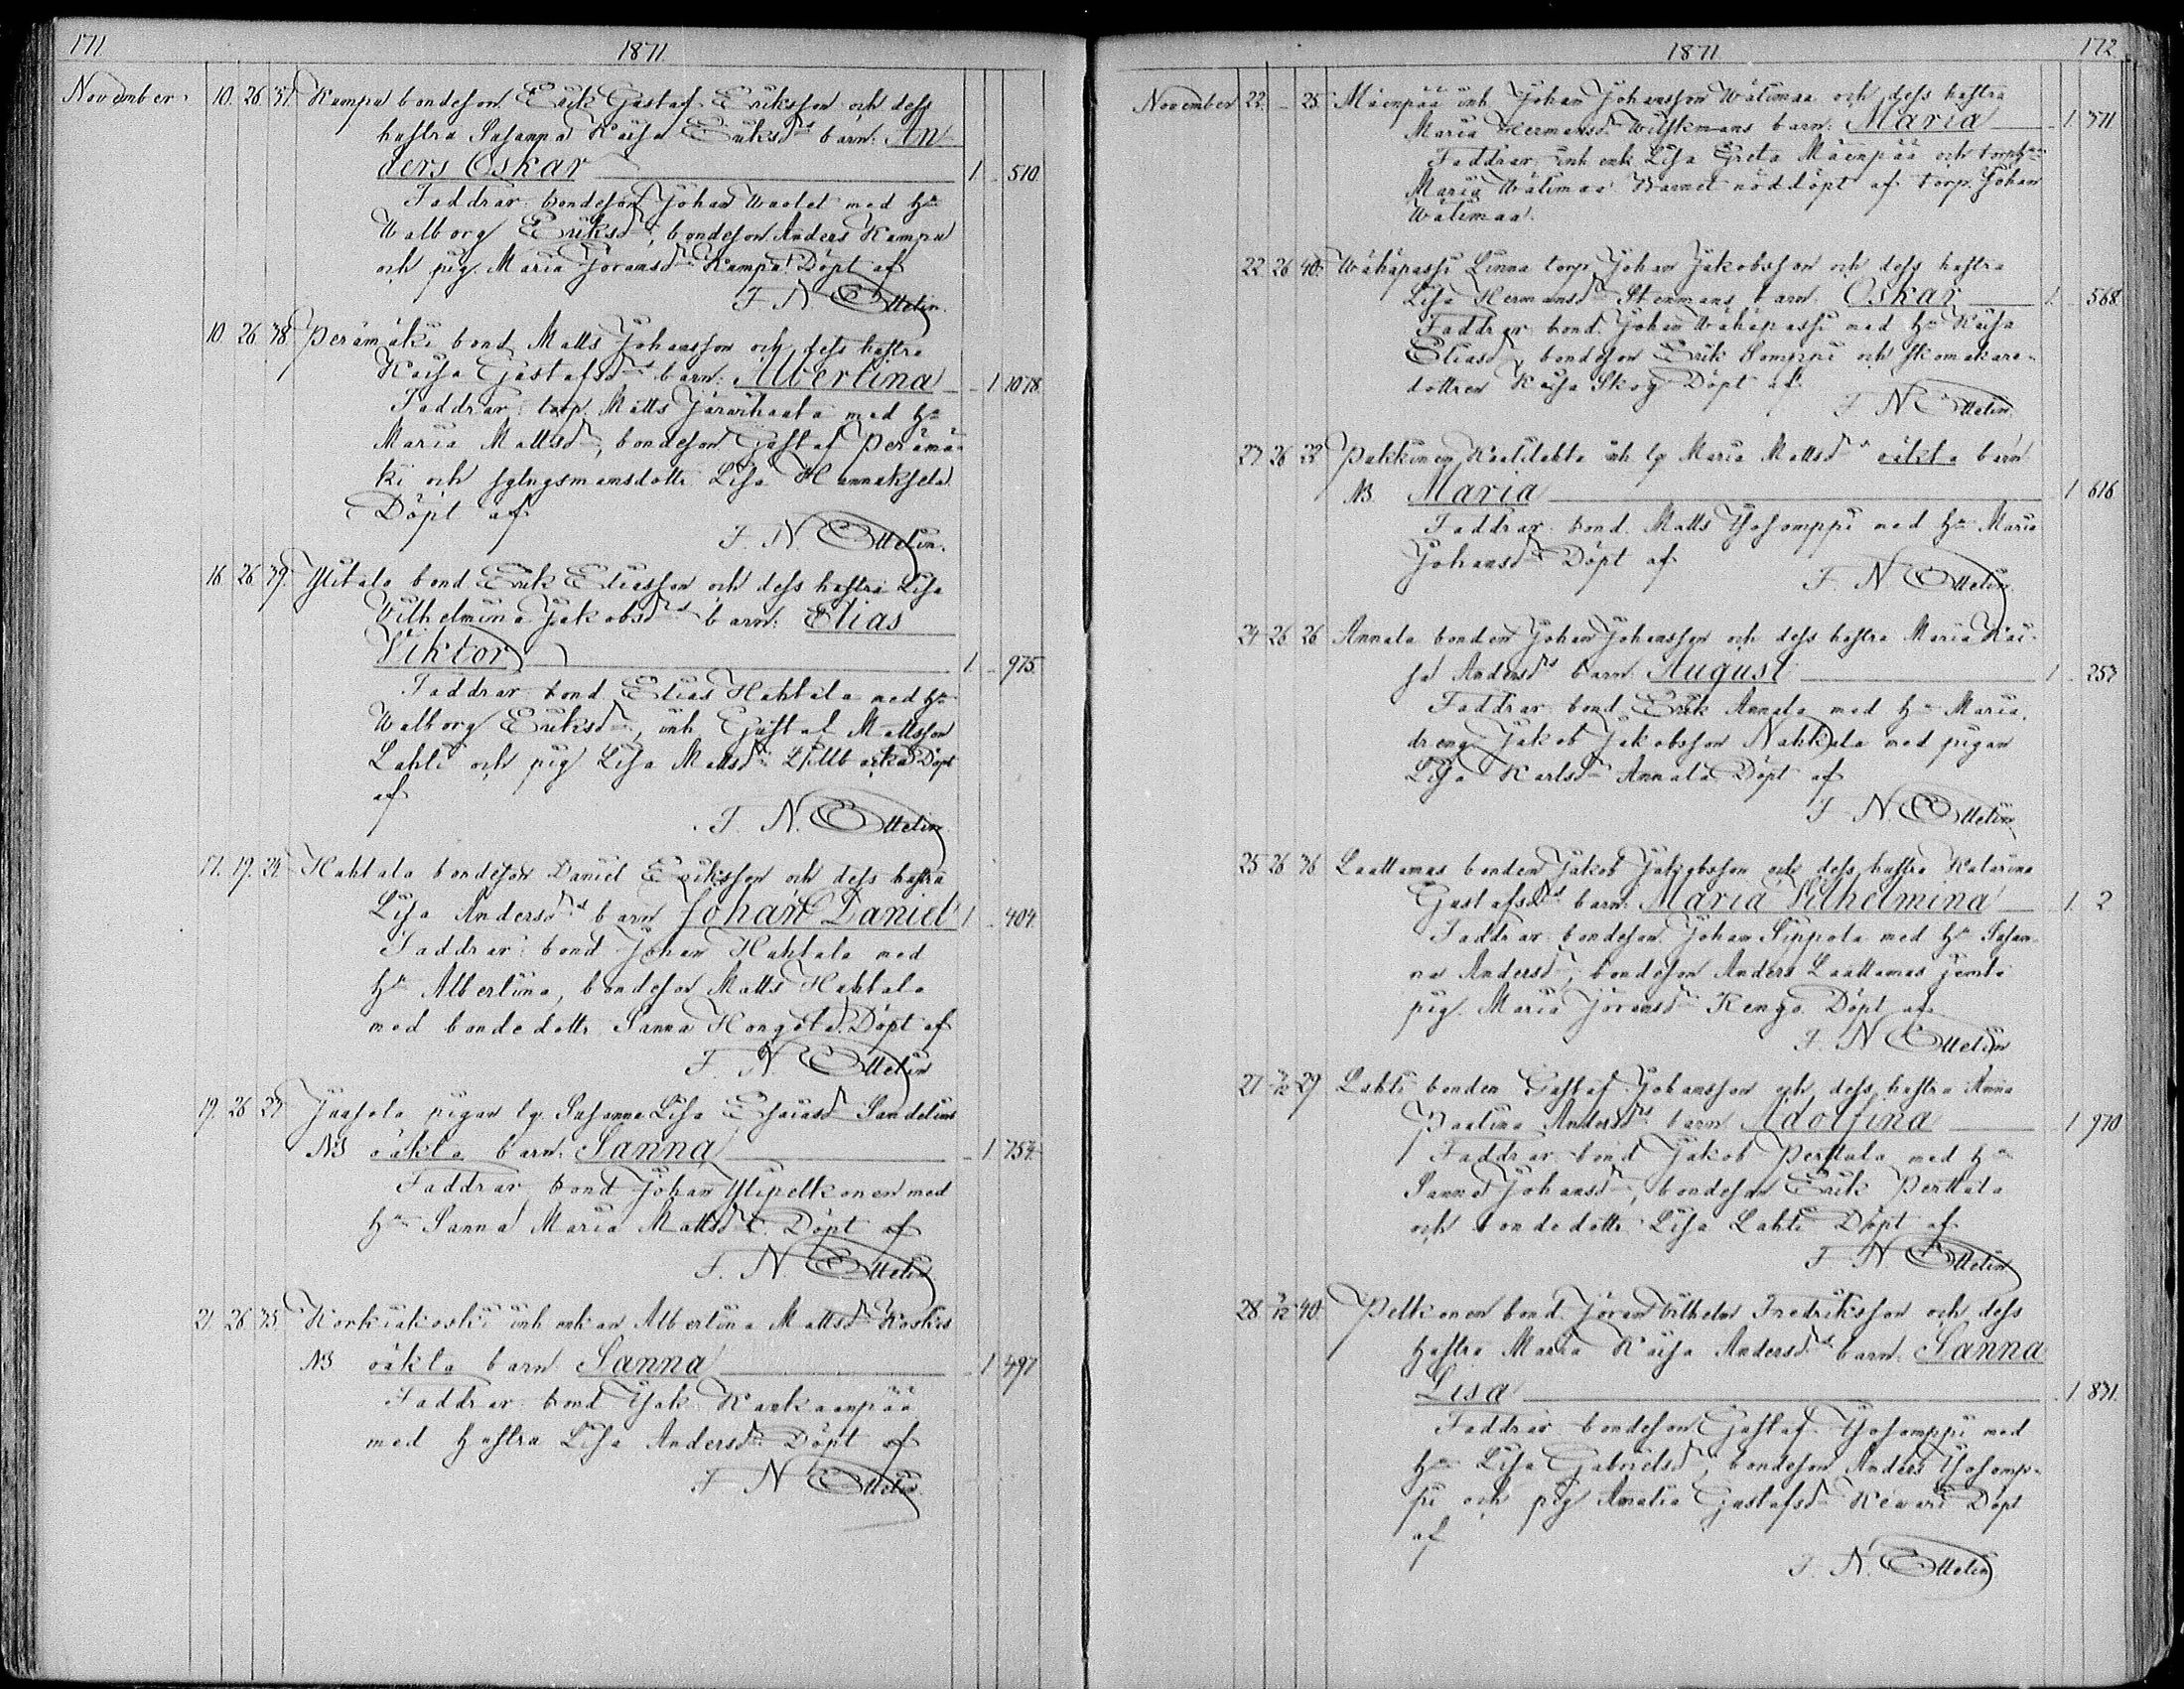 171. 1871.
November. 10. 26. 37. Kampa bondeson Erik Gustaf Eriksson och dess
hustru Susanna Kaisa Eriksdrs barn: An
ders Oskar 1 510.
Faddrar: bondeson Johan med hu
Walborg Eriksdr, bondeson Anders Kampa
och pig. Maria Göransdr Kampa. Döpt af
F. N. Ottelin.
10. 26. 38. Perämäki bond. Matts Johansson och dess hustru
Kaisa Gustafsdrs barn: Albertina 1 1078.
Faddrar: torp. Matts med hu
Maria Mattsdr, bondeson Gustaf Perämä-
ki och dottr. Lisa Hannuksela.
Döpt af
F. N. Ottelin.
16. 26. 39. Ylitalo bond. Erik Eliasson och dess hustru Lisa
Wilhelmina Jakobsdrs barn: Elias
Viktor 1 975.
Faddrar: bond. Elias Hahtala med hu
Walborg Eriksdr, inh. Gustaf Mattsson
Lahti och pig. Lisa Mattsdr Döpt
af
F. N. Ottelin.
17. 19. 24. Hahtala bondeson Daniel Eriksson och dess hustru
Lisa Andersdrs barn Johan Daniel 1 404.
Faddrar: bond. Johan Hahtala med
hu Albertina, bondeson Matts Hahtala
med bondedottr. Sanna Hongola. Döpt af
F. N. Ottelin
19. 26. 27. pigan lg. Susanna Lisa Esaiasdr Sandelins
NB oäkta barn: Sanna 1 754.
Faddrar bond. Johan Ylipelkonen med
hu Sanna Maria Mattsdr. Döpt af
F. N. Ottelin
21. 26. 35. Korkiakoski inh. enkan Albertina Mattsdr Koskis
NB oäkta barn Sanna 1 497
Faddrar: bond. Isak Kankaanpää
med hustru Lisa Andersdr Döpt af
F. N. Ottelin.
1871 172.
November 22. 25. Mäenpää inh. Johan Johansson Wälimaa och dess hustru
Maria Hermansdr barn: Maria 1. 371
Faddrar: inh. enk. Lisa Greta Mäenpää och torphu
Maria Wälimaa Barnet nöddöpt af torp. Johan
Wälimaa.
22 26 40. Wähäpassi Linna torp. Johan Jakobsson och dess hustru
Lisa Hermansdr Stenmans barn Oskar 1. 568.
Faddrar: bond. Johan Wähäpassi med hu Kaisa
Eliasdr, bondeson Erik Somppi och skomakare-
dottren Kaisa Skog. Döpt af
F. N. Ottelin.
23 26 22 Pakkinen inh. lg. Maria Mattsdrs oäkta barn
NB Maria 1 616
Faddrar: bond. Matts Isosomppi med hu Maria
Johansdr Döpt af
F. N. Ottelin
24 26 26 Annala bonden Johan Johansson och dess hustru Maria Kai-
sa Andersdrs barn: August 1 257
Faddrar: bond. Erik Annala med hu Maria,
dreng. Jakob Jakobsson Nahkala med pigan
Lisa Karlsdr Annala Döpt af
F. N. Ottelin
25 26 36 Laattamas bonden Jakob Jakobsson och dess hustru Katarina
Gustafsdrs barn: Maria Wilhelmina 1. 2
Faddrar: bondeson Johan Sippola med hu Susan-
na Andersdr, bondeson Anders Laattamas jemte
pig. Maria Göransdr Kengo. Döpt af
F. N. Ottelin
27 29 Lahti bonden Gustaf Johansson och dess hustru Anna
Paulina Andersdrs barn Adolfina 1 970
Faddrar: bond. Jakob Perttula med hu
Sanna Johansdr, bondeson Erik Perttula
och bondedottr. Lisa Lahti Döpt af
F. N. Ottelin
28. 40. Pelkonen bond. Göran Wilhelm Fredriksson och dess
hustru Maria Kaisa Andersdrs barn: Sanna
Lisa 1 831.
Faddrar: bondeson Gustaf Isosomppi med
hu Lisa Gabrielsdr, bondeson Anders Isosomp-
pi och pig. Amalia Gustafsdr Kewari Döpt
af
F. N. Ottelin